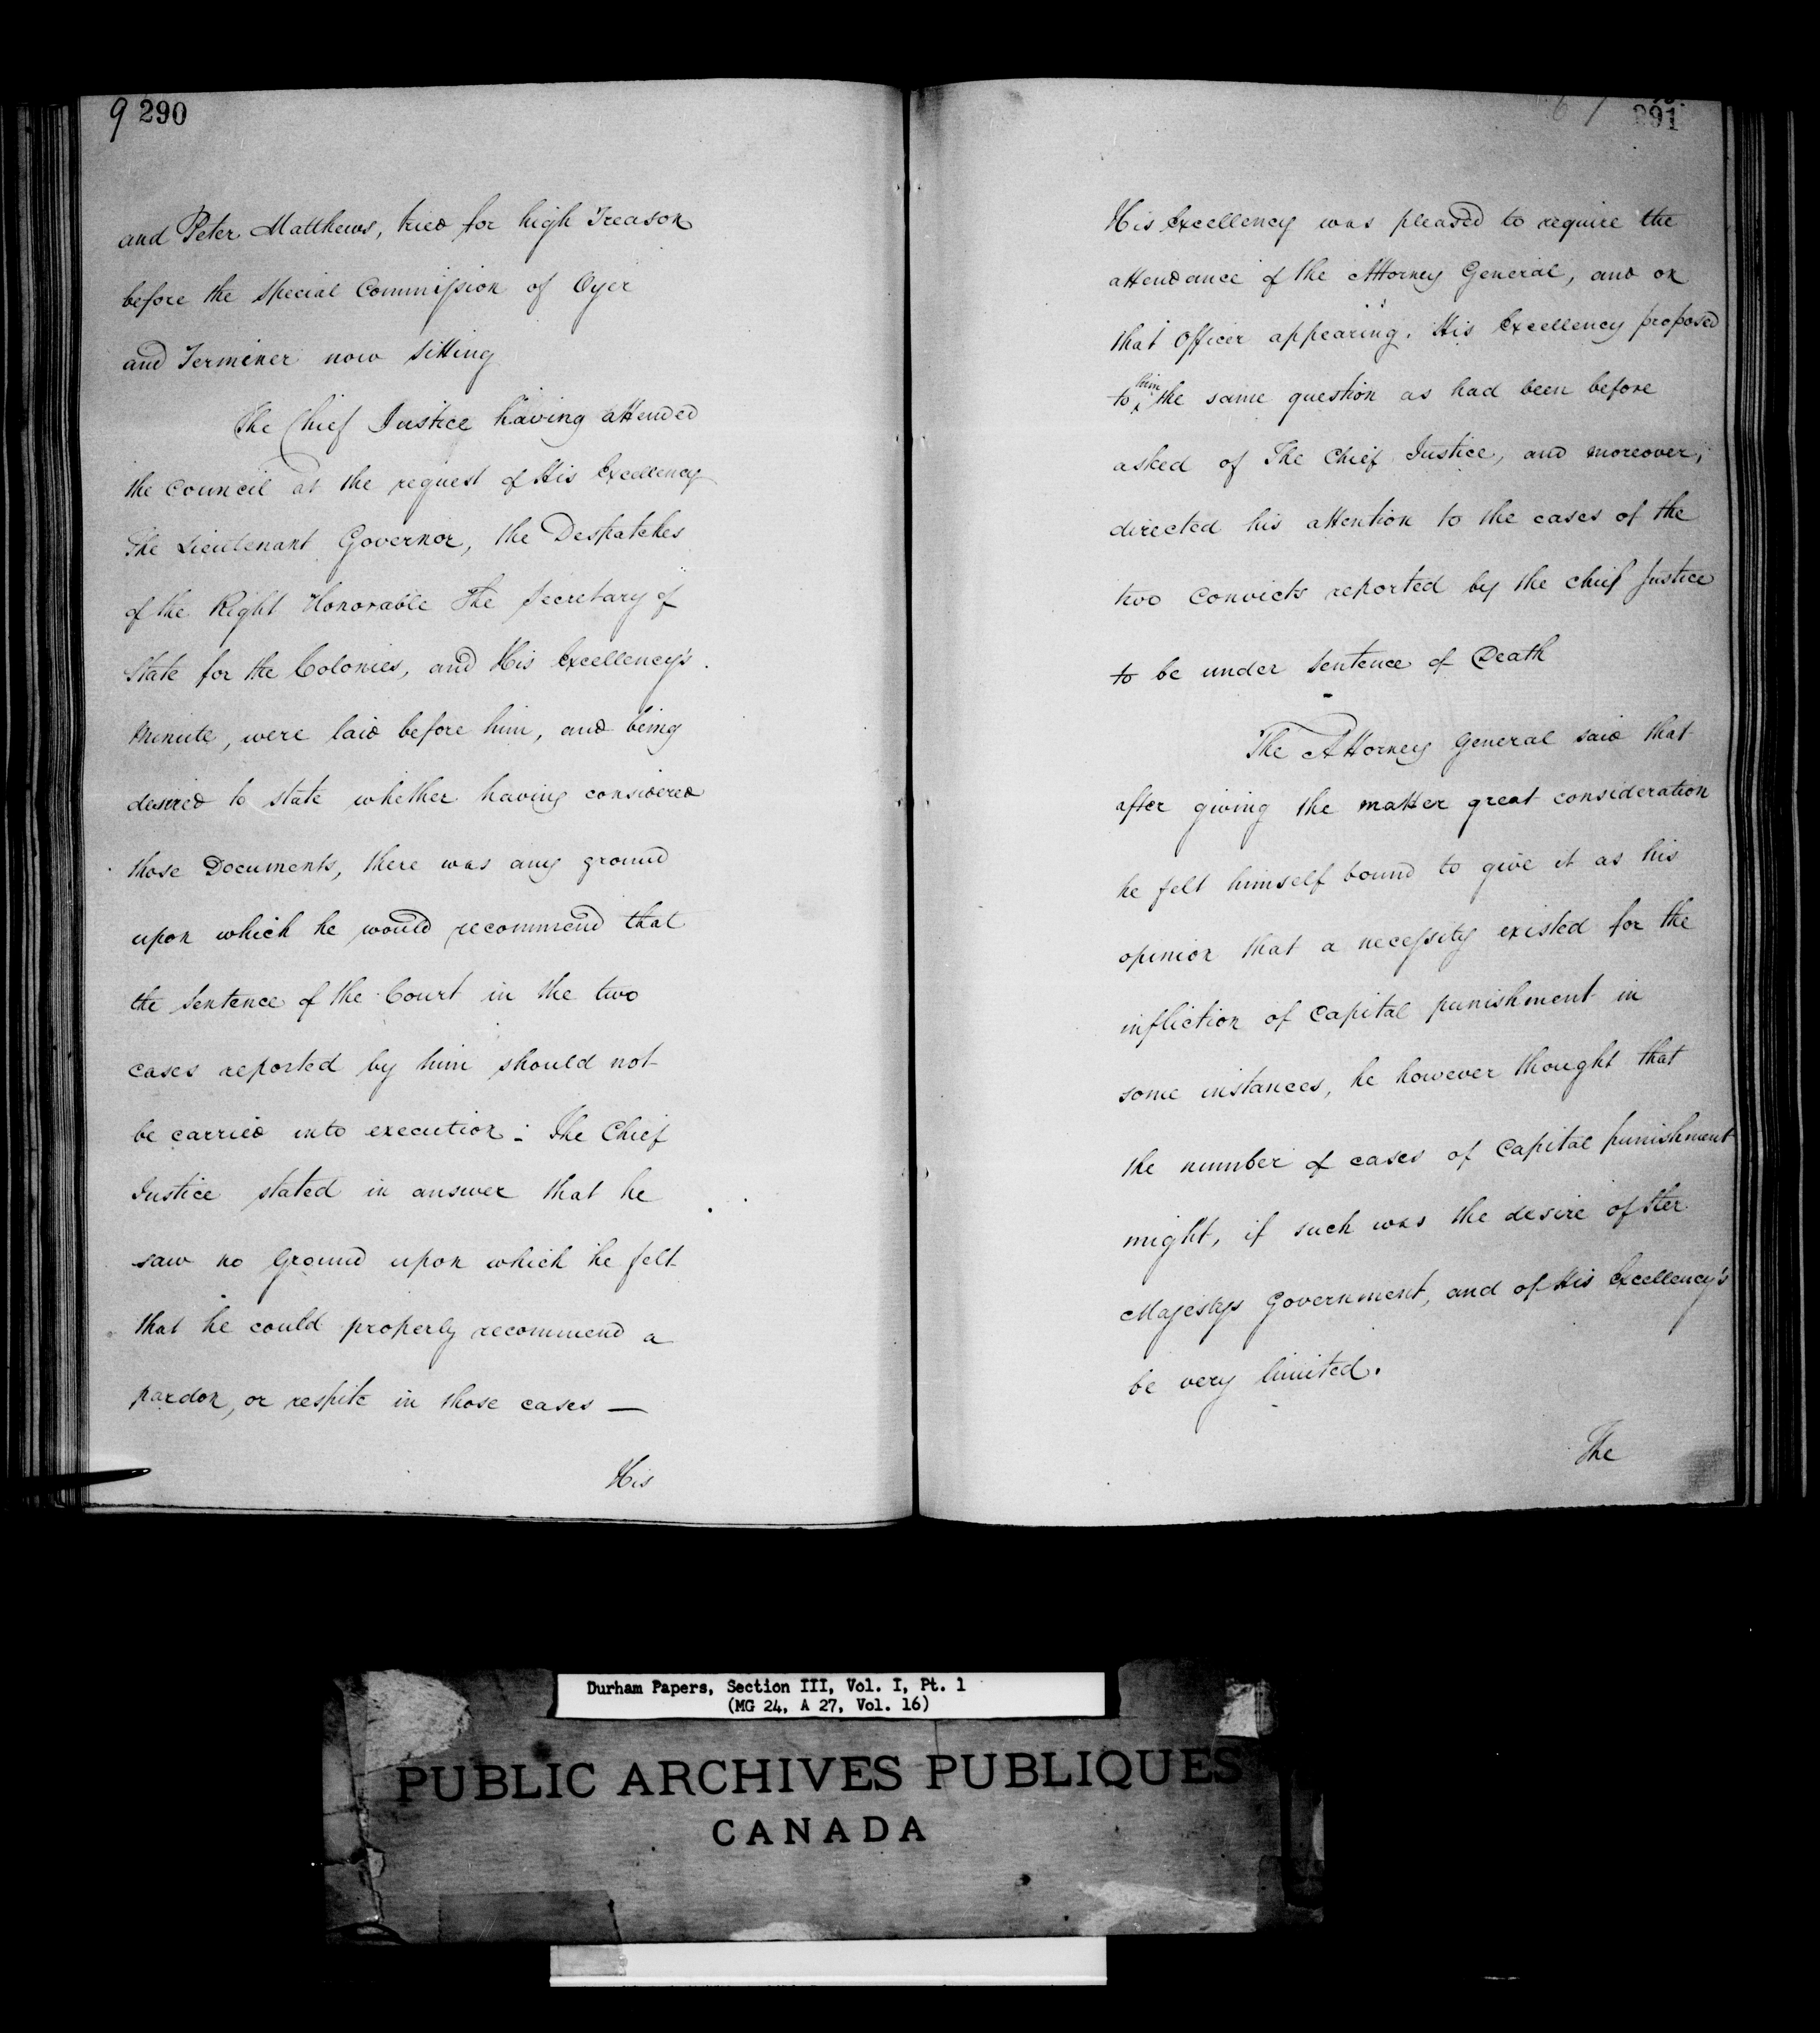 9 290
and Peter Matthews, tried for high Treason
before the special Commission of Oyer
and Terminer now sitting
The Chief Justice having attended
the Council at the request of His Excellency
The Lieutenant Governor, the Despatches
of the Right Honorable The Secretary of
State for the Colonies, and His Excellency's
Minute, were laid before him, and being
desired to state whether having considered
those Documents, there was any ground
upon which he would recommend that
the sentence of the Court in the two
cases reported by him should not
be carried into execution: The Chief
Justice stated in answer that he
saw no ground upon which he felt
that he could properly recommend a
pardon, or respite in those cases —
His
291
His Excellency was pleased to require the
attendance of the Attorney General, and on
that Officer appearing, His Excellency proposed
to him the same question as had been before
asked of The Chief Justice, and moreover,
directed his attention to the cases of the
two Convicts reported by the Chief Justice
to be under sentence of Death
The Attorney General said that
after giving the matter great consideration
he felt himself bound to give it as his
opinion that a necessity existed for the
infliction of Capital punishment in
some instances, he however thought that
the number of cases of Capital punishment
might, if such was the desire of Her
Majestys Government, and of His Excellency's
be very limited.
The
Durham Papers, Section III, Vol. I, Pt. 1
(MG 24, A 27, Vol. 16)
PUBLIC ARCHIVES PUBLIQUES
CANADA